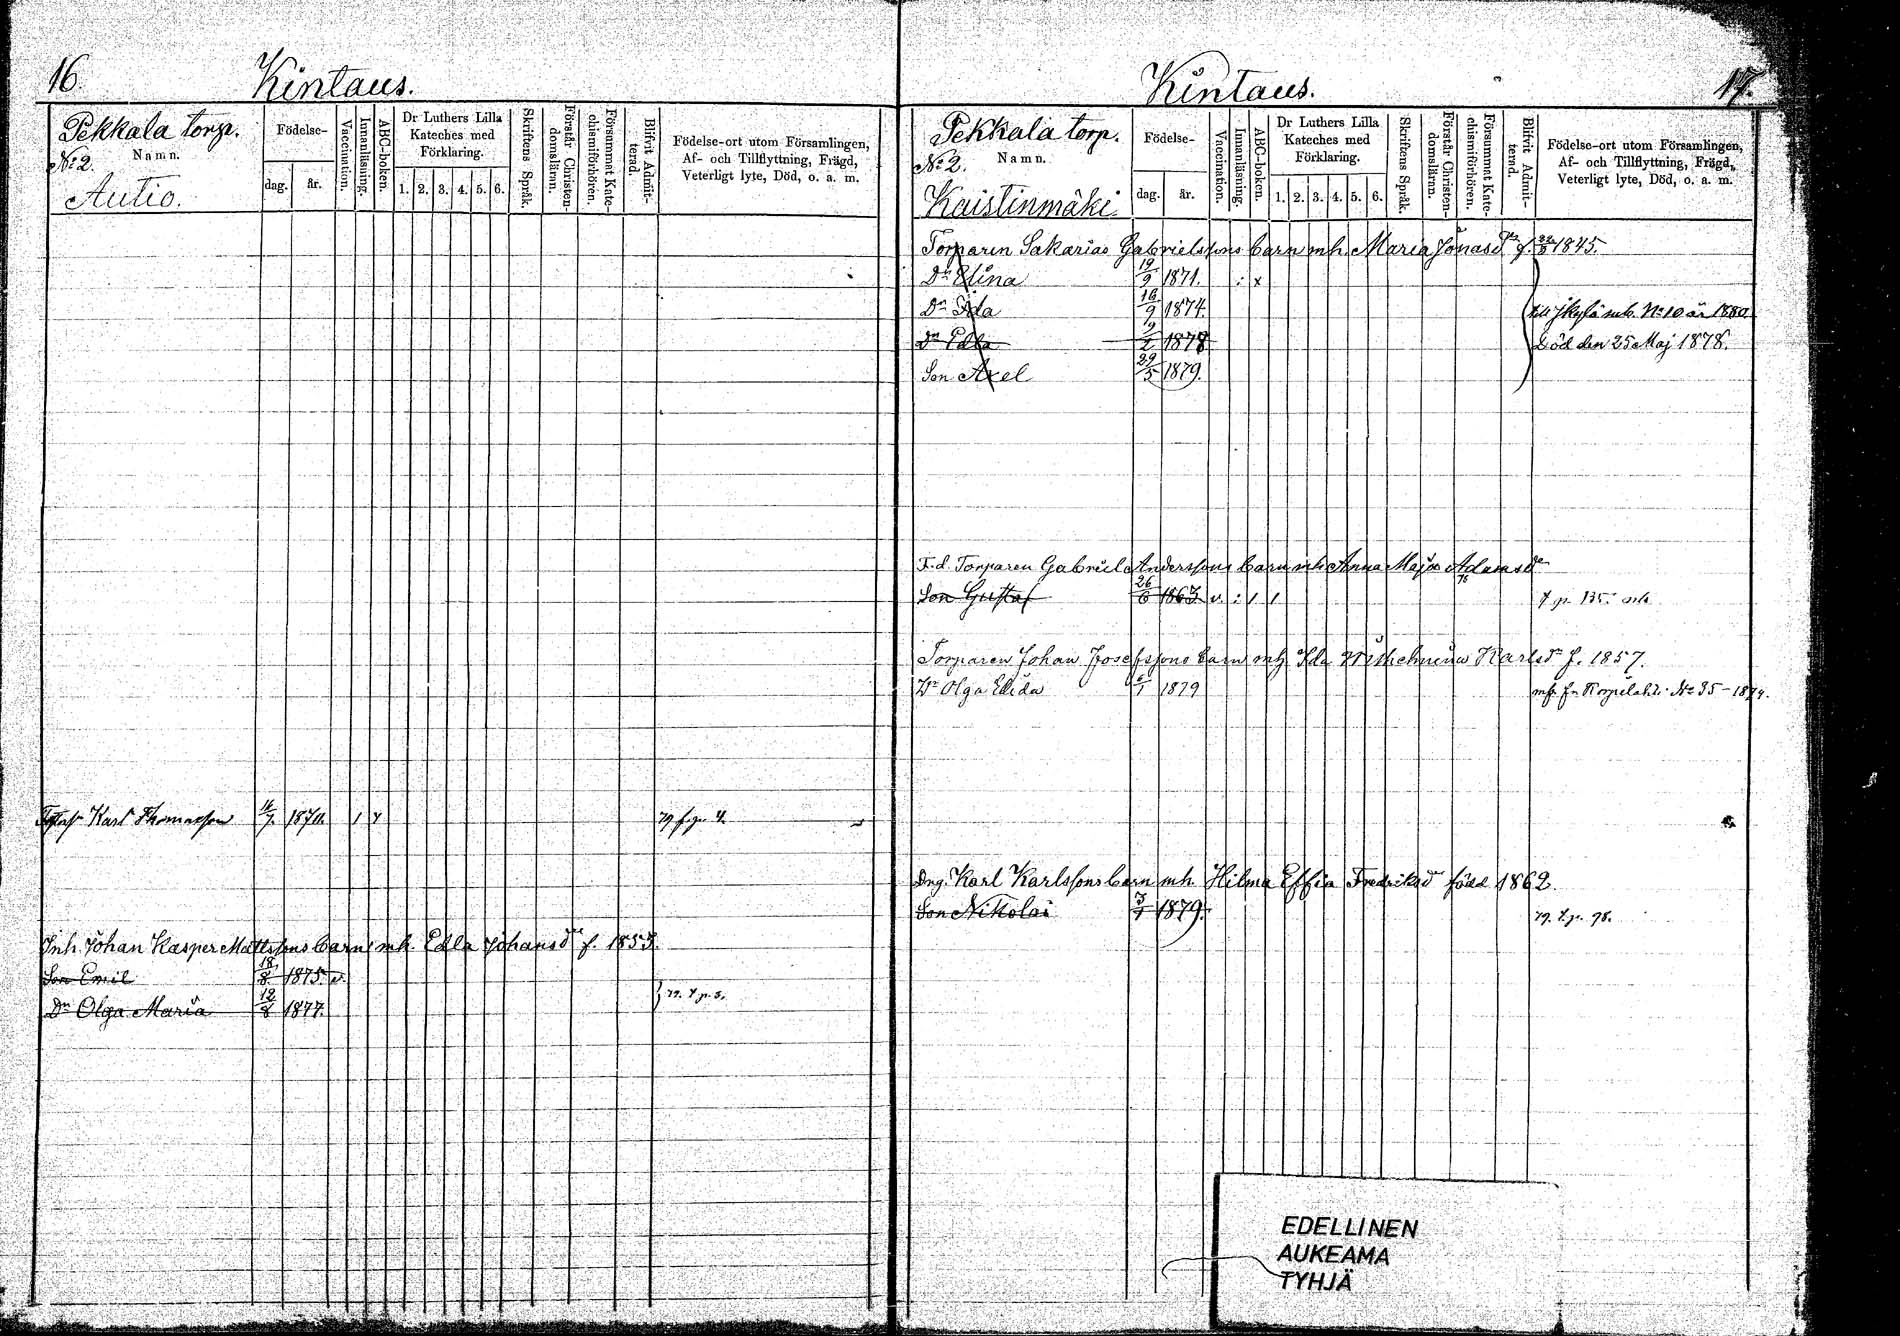 16. Kintaus.
Pekkala torp.
No 2. Namn.
Autio.
Födelse-
dag. år.
Vaccination.
Innanläsning.
ABC-boken.
Dr Luthers Lilla
Kateches med
Förklaring.
1. 2. 3. 4. 5. 6.
Skriftens Språk.
Förstår Christen-
domsläran.
Försummat Kate-
chismiförhören.
Blifvit Admit-
terad.
Födelse-ort utom Församlingen,
Af- och Tillflyttning, Frägd,
Veterligt lyte, Död, o. a. m.
Karl Thomasson 16/7 187 79 f. p. 4.
Inh. Johan Kasper Mattssons barn mh. Edla Johansdr f. 1853.
Son Emil 18/8 1875. v.
Dr Olga Maria 12/8 1877. 79. t. p. 5.
Kintaus. 17.
Pekkala torp.
No 2. Namn.
Kaistinmäki.
Födelse-
dag. år.
Vaccination.
Innanläsning.
ABC-boken.
Dr Luthers Lilla
Kateches med
Förklaring.
1. 2. 3. 4. 5. 6.
Skriftens Språk.
Förstår Christen-
domsläran.
Försummat Kate-
chismiförhören.
Blifvit Admit-
terad.
Födelse-ort utom Församlingen,
Af- och Tillflyttning, Frägd,
Veterligt lyte, Död, o. a. m.
Torparen Sakarias Gabrielssons barn mh. Maria Jonasdr f. 22/3 1845.
Dr Elina 19/9 1871. : x
Dr Ida 16/9 1874. till Jkylä mb. No 10 år 1880.
Dr Edla 19/2 1878 Död den 25 Maj 1878.
Son Axel 29/5 1879.
F.d. Torparen Gabriel Anderssons barn mh Anna Maja Adamsdr
Son Gustaf 26/6 1863. v. : 1 1 t. p. 135.
Torparen Johan Josefssons barn mh. Ida Wilhelmina Karlsdr f. 1857.
Dr Olga Elida 1879 mb. fr. Korpilahti No 35 - 1879.
Drg. Karl Karlssons barn mh. Hilma Effia Fredriksdr född 1862.
Son Nikolai 1879. 79. t. p. 98.
EDELLINEN
AUKEAMA
TYHJÄ